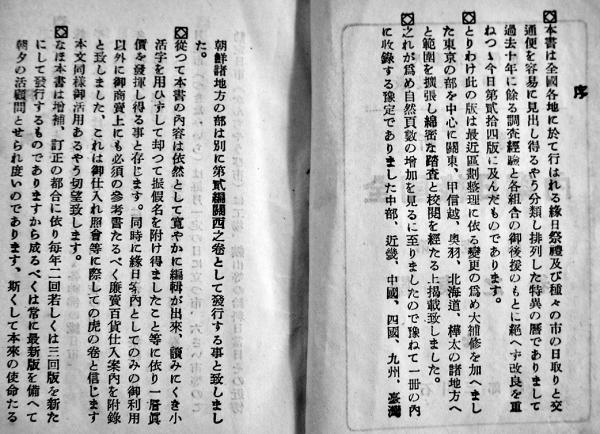 序
本書は全國各地に於て行はれる緣日祭禮及び種々の市の日取りと交
通便を容易に見出し得るやう分類し排列した特異の曆でありまして
過去十年に餘る調査經驗と各組合の御後援のもとに絕へず改良を重
ねつゝ今日第貳拾四版に及んだものであります。
とりわけ此の版は最近區劃整理に依る變更の爲め大補修を加へまし
た東京の部を中心に關東、甲信越、奧羽、北海道、樺太の諸地方へ
と範圍を擴張し綿密な踏査と校閱を經たる上揭載致しました。
之れが爲め自然頁數の增加を見るに至りましたので豫ねて一冊の內
に收錄する豫定でありました中部、近畿、中國、四國、九州、臺灣
朝鮮諸地方の部は別に第貳編關西之卷として發行する事と致しまし
た。
從つて本書の內容は依然として寬やかに編輯が出來、讀みにくき小
活字を用ひずして却つて振假名を附け得ましたこと等に依り一層眞
價を發揮し得る事と存じます。同時に緣日案內としてのみの御利用
以外に御商賣上にも必須の參考書たるべく廉賣百貨仕入案內を附錄
と致しました、これは御仕入れ照會等に際しての虎の卷と信じます
本文同樣御活用あるやう切望致します。
なほ本書は增補、訂正の都合に依り每年二回若しくは三回版を新た
にして發行するものでありますから成るべくは常に最新版を備へて
朝夕の活顧問とせられ度いのであります、斯くして本來の使命たる